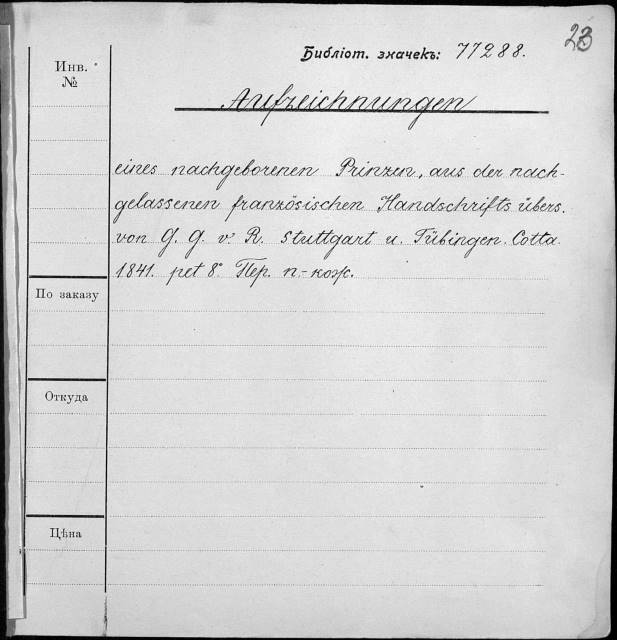 23
Библіот. значекъ: 77288.
Инв.
№
Aufzeichnungen
eines nachgeborenen Prinzen, aus der nach-
gelassenen französischen Handschrifts übers.
von G. G. v. R. Stuttgart u. Tübingen. Cotta.
1841. pet 8º. Пер. п.-кож.
По заказу
Откуда
Цѣна